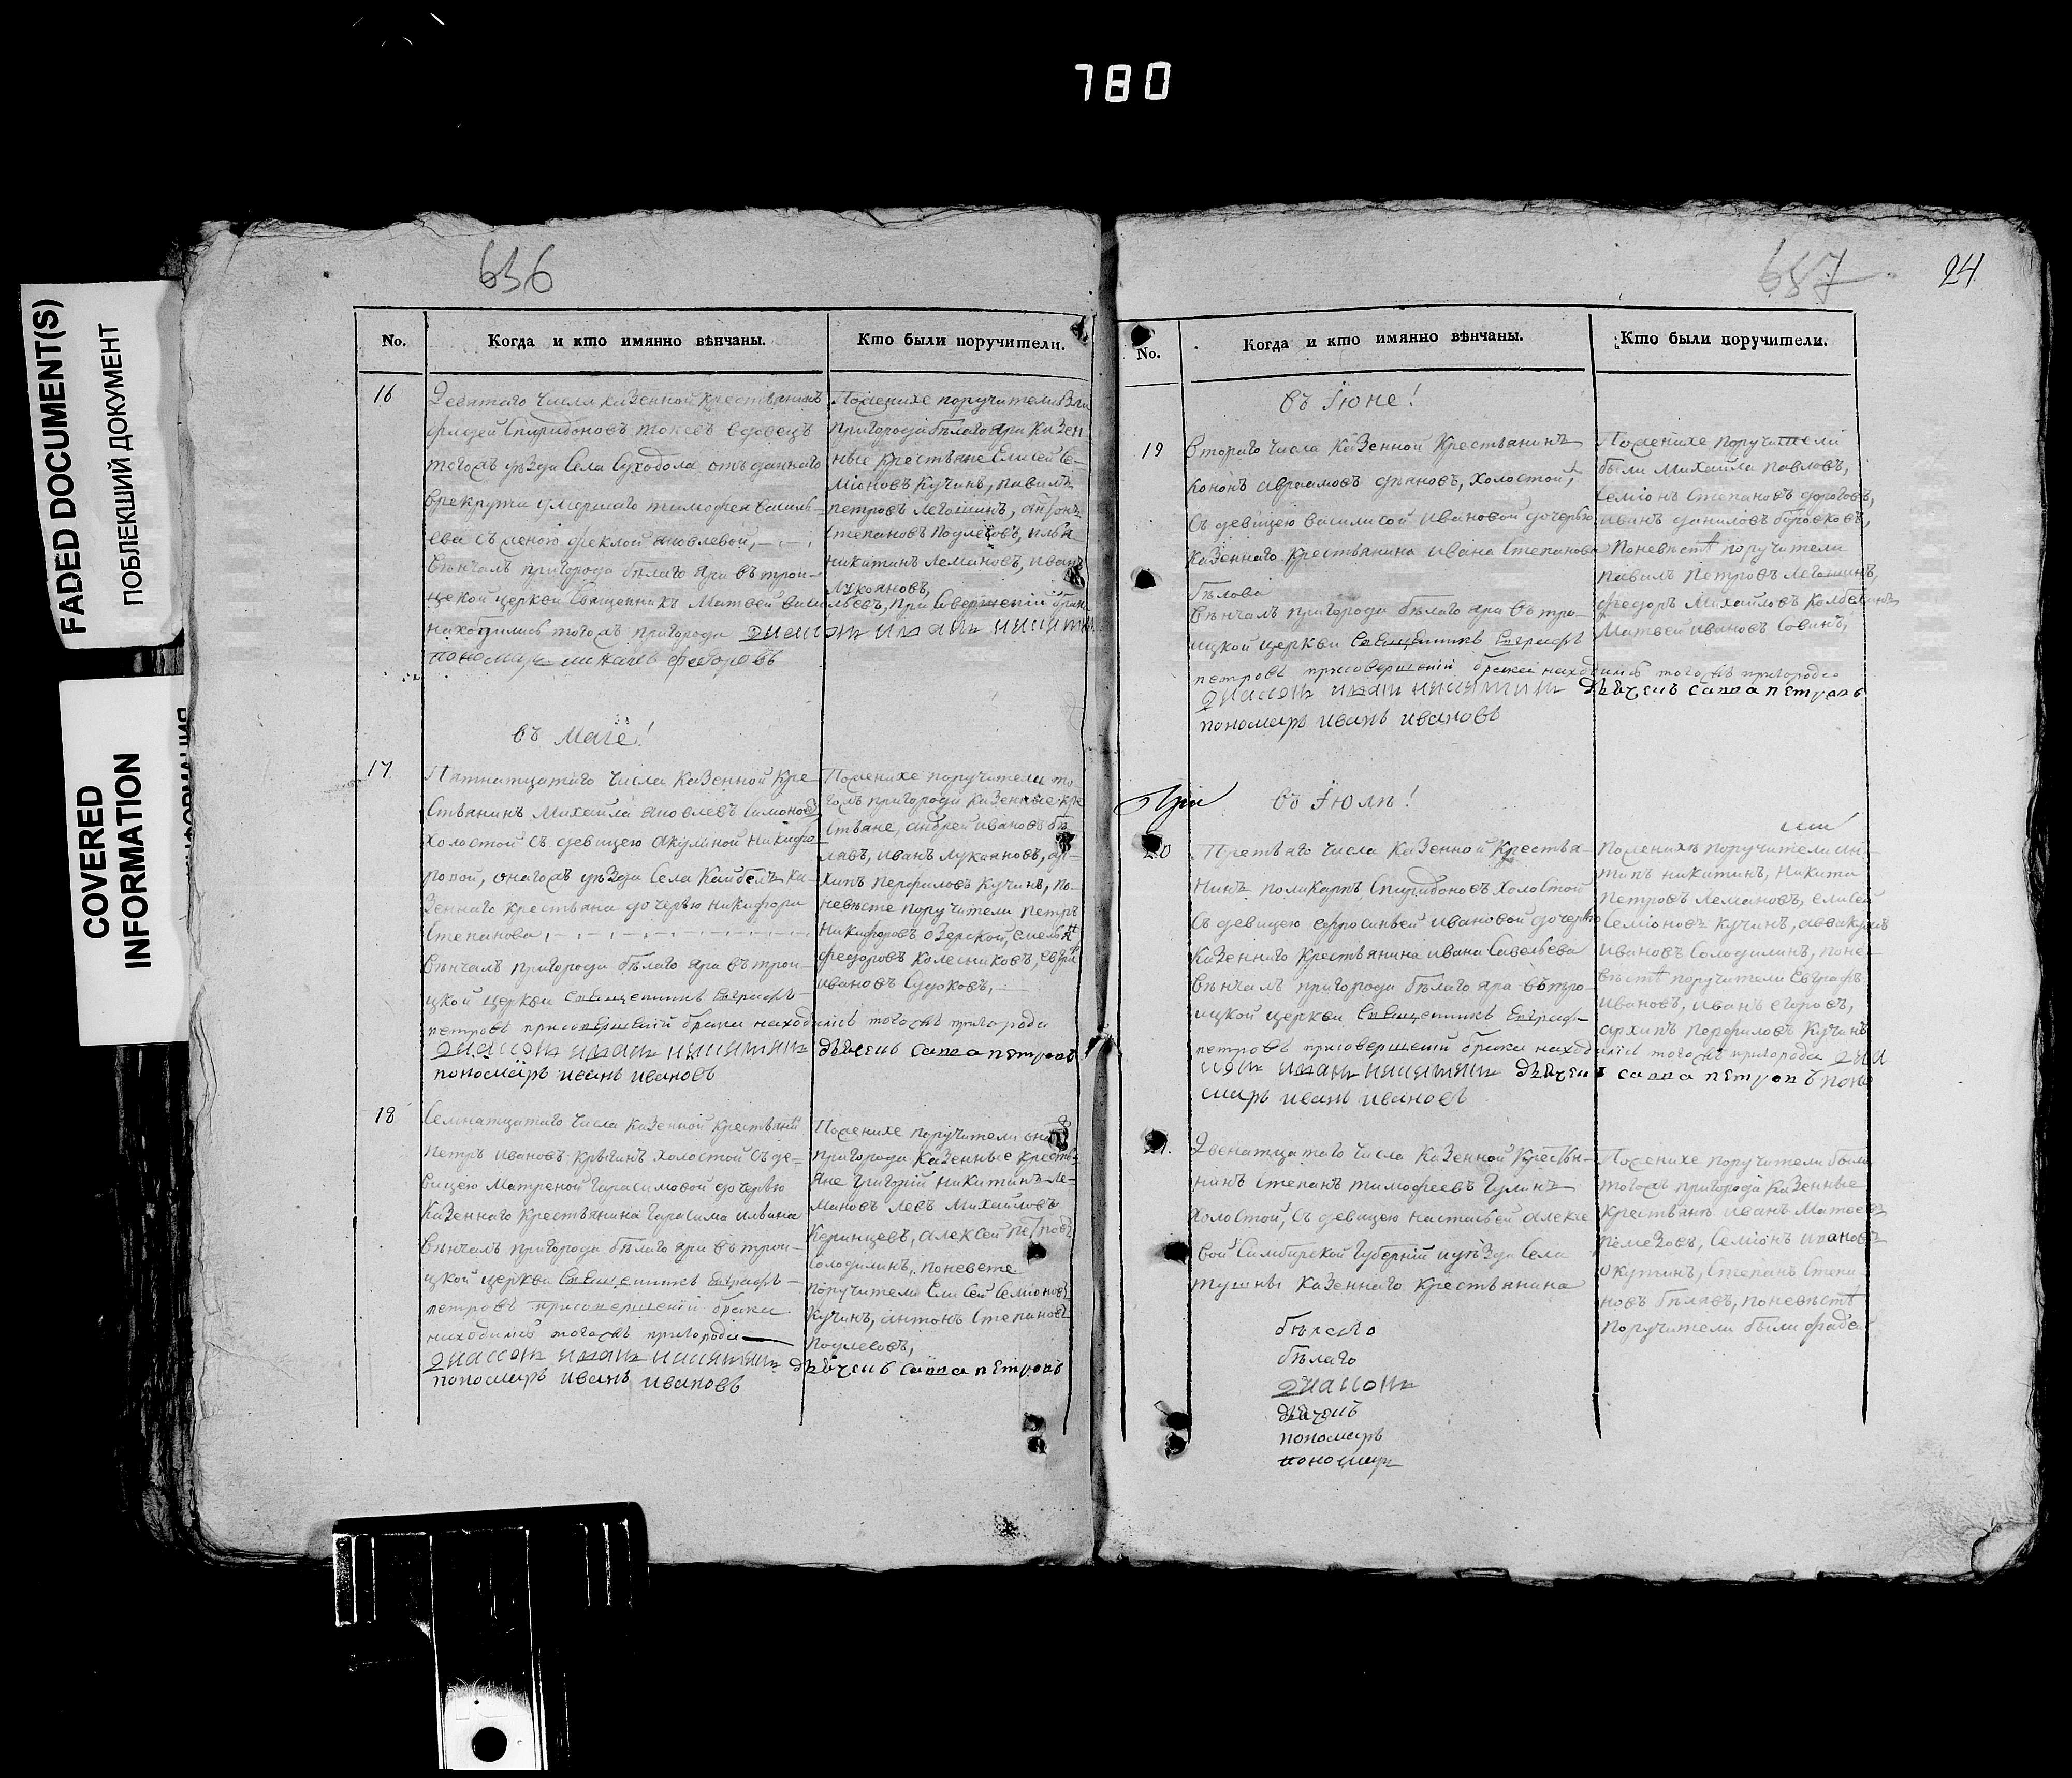 780
FADED DOCUMENT(S)
ПОБЛЕКШИЙ ДОКУМЕНТ
COVERED
INFORMATION
636
No.
Когда и кто имянно вѣнчаны.
Кто были поручители.
16
Девятаго числа казенной крестьянинъ
Спиридоновъ токевъ вдовецъ
тогожъ уѣзда села Суходола отъ даннаго
врекруты умершаго тимофея василь-
ева съ женою феклой яковлевой,
Вѣнчалъ пригорода бѣлаго яра въ трои-
цкой церкви священникъ Матвей васильевъ, при совершеній брака
находились тогожъ пригорода диаконъ иванъ никитинъ
пономарь федоровъ
Поженихе поручители
пригорода бѣлаго яра казен
ные крестьяне Елисей се-
міоновъ Кучинъ, павилъ
петровъ Легошинъ, антонъ
степановъ Подлесовъ, илья
никитинъ Лемановъ, иванъ
Лукояновъ,
въ Маіе!
17
Пятнатцатаго числа казенной кре
стьянинъ Михайла яковлевъ симоновъ
холостой съ девицею акулиной никифо
ровой, онагожъ уѣзда села Каибелъ ка-
зеннаго крестьяна дочерью никифора
степанова,
Вѣнчалъ пригорода бѣлаго яра въ трои-
цкой церкви священникъ Евграфъ
петровъ присовершеній брака находились тогожъ пригорода
диаконъ иванъ никитинъ дьячекъ савва петровъ
пономарь иванъ ивановъ
Поженихе поручители то
гожъ пригорода казенные кре
стьяне, андрей ивановъ бѣ
ляевъ, иванъ лукояновъ, ар-
хипъ перфиловъ Кучинъ, по-
невѣсте поручители петръ
никифоровъ озерской, емельянъ
федоровъ колесниковъ,
ивановъ Судоковъ,
18
Семнатцатаго числа казенной крестьянинъ
Петръ ивановъ крыгинъ холостой съ де-
вицею Матреной гарасимовой дочерью
казеннаго крестьянина гарасима ильина
Вѣнчалъ пригорода бѣлаго яра въ трои-
цкой церкви священникъ Евграфъ
петровъ присовершеній брака
находились тогожъ пригорода
диаконъ иванъ никитинъ дьячекъ савва петровъ
пономарь иванъ ивановъ
Поженихе поручители онаго
пригорода казенные кресть-
яне григорій никитинъ Ле-
мановъ левъ михайловъ
Керинцевъ, алексей петровъ
солодилинъ, поневесте
поручители Елисей семіоновъ
Кучинъ, антонъ степановъ
Подлесовъ,
687
24
No.
Когда и кто имянно вѣнчаны.
Кто были поручители.
въ Іюне!
19
Втораго числа казенной крестьянинъ
кононъ авраамовъ улановъ, холостой,
съ девицею василисой ивановой дочерью
казеннаго крестьянина ивана степанова
бѣлова
Вѣнчалъ пригорода бѣлаго яра въ тро-
ицкой церкви священникъ Евграфъ
петровъ присовершеній брака находились тогожъ пригорода
диаконъ иванъ никитинъ дьячекъ савва петровъ
пономарь иванъ ивановъ
Поженихе поручители
были михайла павловъ,
семіонъ степановъ дороговъ,
иванъ даниловъ бобровковъ,
Поневестѣ поручители
павилъ петровъ Легошинъ,
федоръ михайловъ колбекинъ
Матвей ивановъ Совинъ,
При
въ Іюли!
20
Третьяго числа казенной крестья-
нинъ поликарпъ спиридоновъ холостой
съ девицею ефросиньей ивановой дочерью
казеннаго крестьянина ивана савельева
Вѣнчалъ пригорода бѣлаго яра въ тро-
ицкой церкви священникъ Евграфъ
петровъ присовершеній брака находились тогожъ пригорода диа
конъ иванъ никитинъ дьячекъ савва петровъ поно
марь иванъ ивановъ
Поженихѣ поручители ан-
типъ никитинъ, никита
петровъ Лемановъ, елисей
семіоновъ Кучинъ, аввакумъ
ивановъ Солодилинъ, поне-
вѣстѣ поручители Евграфъ
ивановъ, иванъ егоровъ,
архипъ перфиловъ Кучинъ
21.
Двенатцатаго числа казенной крестья-
нинъ степанъ тимофеевъ гулинъ
холостой, съ девицею настасьей алексе
вой Симбирской губерній и уѣзда села
тушны казеннаго крестьянина
бѣлаго
бѣлаго
диаконъ
дьячекъ
пономарь
пономарь
Поженихе поручители были
тогожъ пригорода казенные
крестьяне иванъ матвеевъ
ремезовъ, семіонъ ивановъ
окунинъ, степанъ степа
новъ бѣляевъ, поневѣстѣ
поручители были